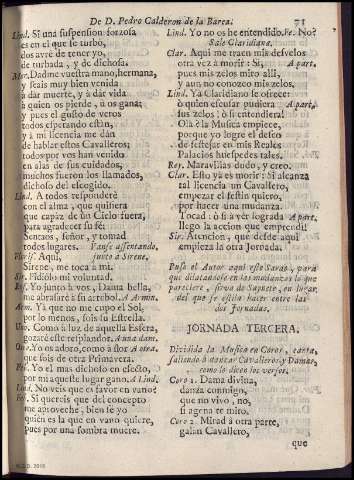 De D. Pedro Calderon de la Barca. 71
Lind. Si una suspension forzosa
es en el que se turbó,
dos avrè de tener yo,
de turbada, y de dichosa.
Mar. Dadme vuestra mano, hermana,
y seais muy bien venida
à dár muerte, y à dár vida
à quien os pierde, ù os gana;
y pues el gusto de veros
todos esperando están,
y à mi licencia me dán
de hablar estos Cavalleros;
todos por vos han venido
en alas de sus cuidodos,
muchos fueron los llamados,
dichoso del escogido.
Lind. A todos responderè
con el alma, que quisiera
que capaz de un Cielo fuera,
para agradecer su fé:
Sentaos, señor, y tomad
todos lugares. Vanse assentando,
Floris. Aqui, junto à Sirene.
Sirene, me toca à mi.
Sir. Fidelio mi voluntad.
Yo junto à vos, Dama bella,
me abrasarè à su arrebol. A Armin.
Arm. Yá que no me cupo el Sol,
por lo menos, sois su Estrella.
Como à luz de aquella Esfera,
gozarè este resplandor. A una dam.
Yo os adoro, como à flor A otra.
que sois de otra Primavera.
Yo el mas dichoso en efecto,
por mi aqueste lugar gano. A Lind.
Lind. No veis que es favor en vano?
Fe. Si quereis que del concepto
me aproveche, bien sè yo
quién es la que en vano quiere,
pues por una sombra muere.
Lind. Yo no os he entendido. Fe. No?
Sale Claridiana.
Clar. Aqui me traen mis desvelos
otra vez à morir: Si, A part.
pues mis zelos miro alli,
y aun no conozco mis zelos.
Lind. Ya Claridiano se ofrece:
ò quien escusar pudiera A part.
sus zelos! ò si entendiera!
Ola? la Musica empiece,
porque yo logre el deseo
de festejar en mis Reales
Palacios huespedes tales.
Rey. Maravillas dudo, y creo.
Clar. Esto yá es morir: Si alcanza
tal licencia un Cavallero,
empezar el festin quiero,
por hacer una mudanza.
Tocad: ò si à vér lograda A part.
llego la accion que emprendi!
Sir. Atencion, que desde aqui
empieza la otra Jornada.
Puso el Autor aqui este Sarao, para
que dilatandole en las mudanzas lo que
pareciere, sirva de Saynete, en lugar
del que se estila hacer entre las
dos Jornadas.
JORNADA TERCERA.
Dividida la Musica en Coros, canta,
saliendo à danzar Cavalleros, y Damas,
como lo dicen los versos.
Coro 1. Dama divina,
danza conmigo,
que no vivo, no,
si agena te miro.
Coro 2. Mirad à otra parte,
galan Cavallero,
que